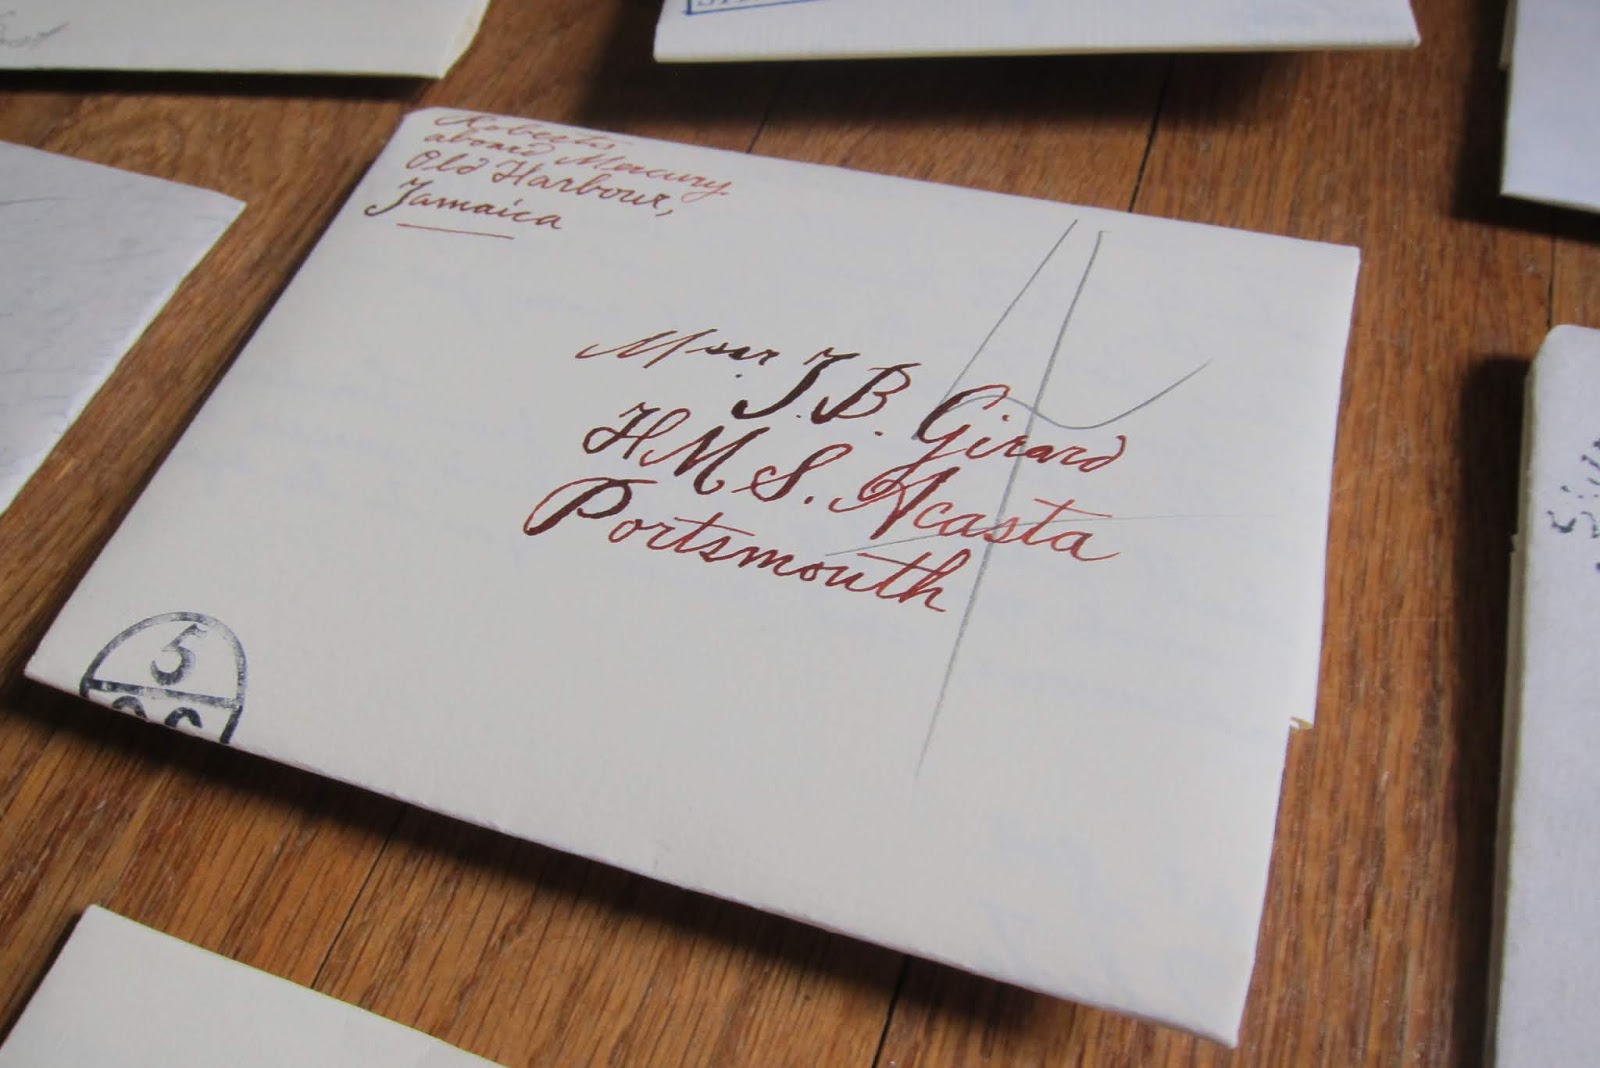 Roberts
aboard Mercury
Old Harbour,
Jamaica
J. B. Girard
HMS. Acasta
Portsmouth
5